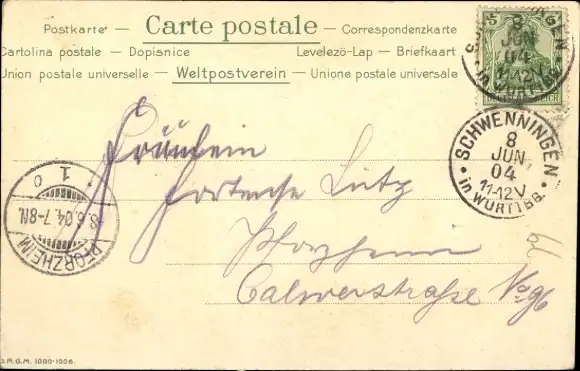 Postkarte — Carte postale — Correspondenzkarte
Cartolina postale — Dopisnice Levelező-Lap — Briefkaart
Union postale universelle — Weltpostverein — Unione postale universale
SCHWENNINGEN
8
JUN
04
11-12V.
in WÜRTTBG.
SCHWENNINGEN
8
JUN
04
11-12V.
in WÜRTTBG.
Fräulein
Hortense Lutz
Pforzheim
Calwerstraße No 96
PFORZHEIM
1
8.6.04.7-8N.
D.R.G.M. 1080-1006.